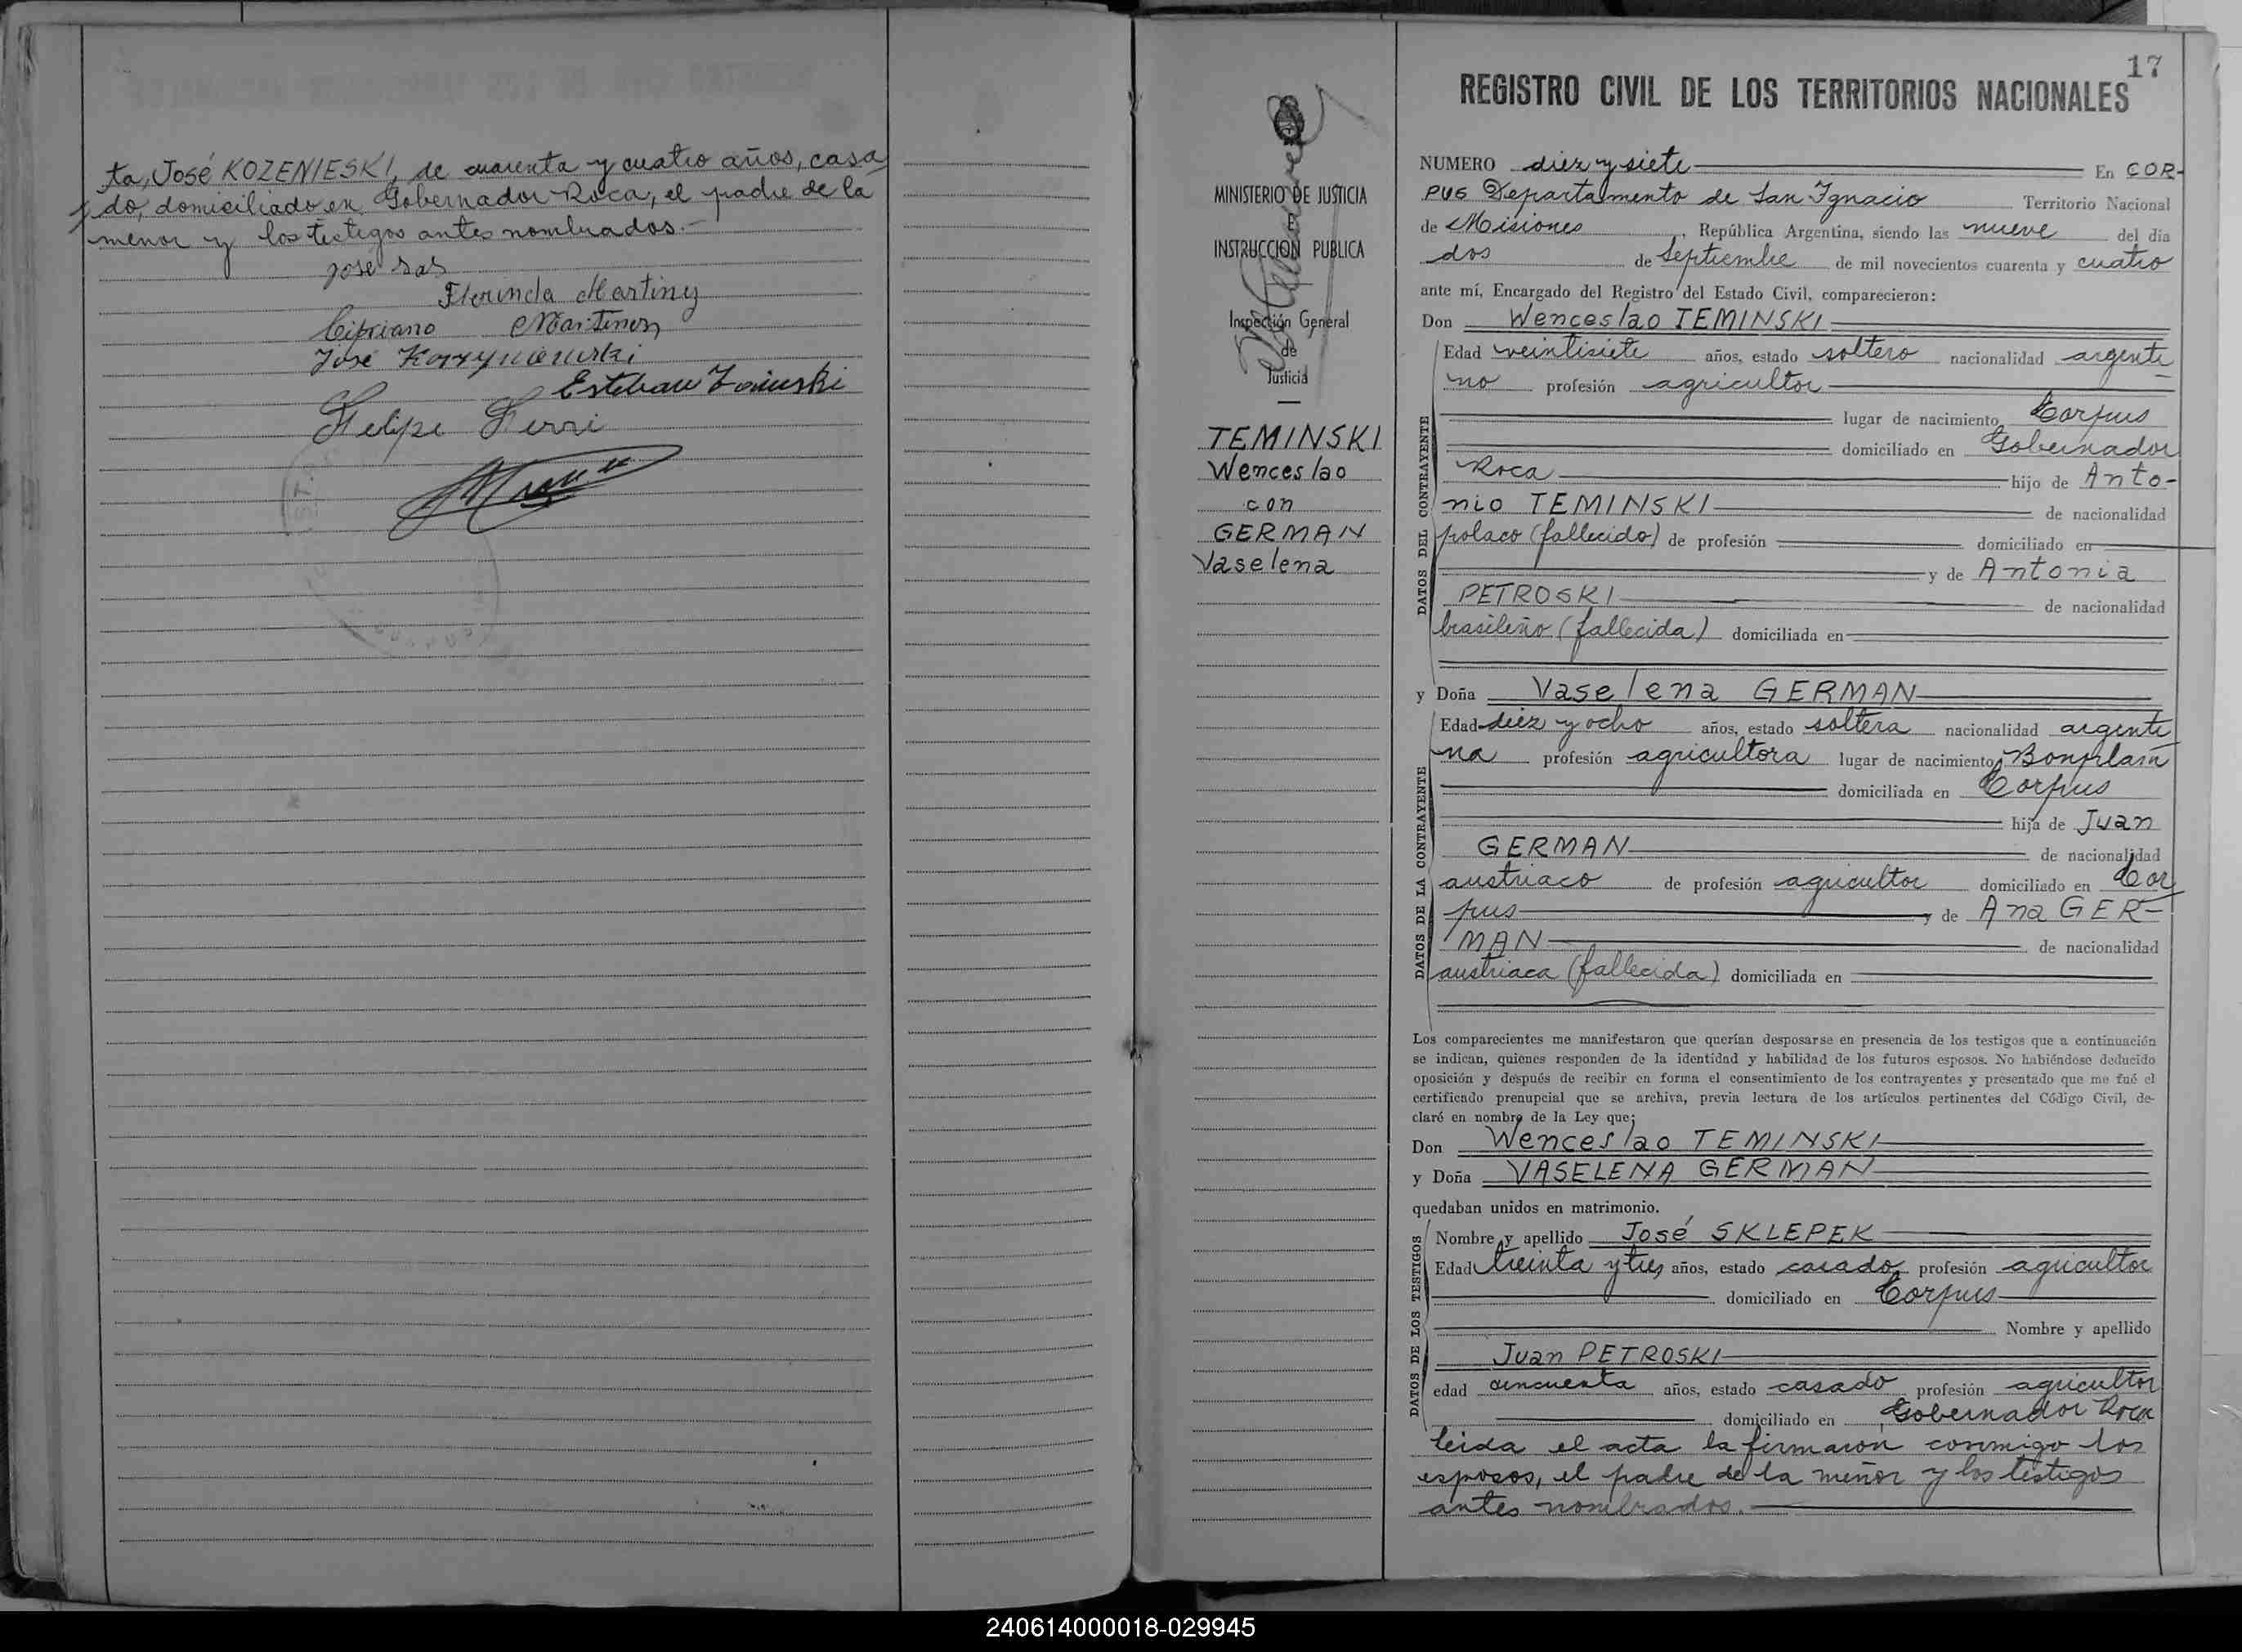 ta, José KOZENIESKI, de cuarenta y cuatro años, casa
do, domiciliado en Gobernador Roca, el padre de la
menor y los testigos antes nombrados.-
José Sas
Florinda Martiny
Cipriano Martinez
José
Esteban
Felipe Ferri
17
REGISTRO CIVIL DE LOS TERRITORIOS NACIONALES
MINISTERIO DE JUSTICIA
E
INSTRUCCION PUBLICA
Inspección General
de
Justicia
TEMINSKI
Wenceslao
con
GERMAN
Vaselena
NUMERO diez y siete En COR-
PUS Departamento de San Ignacio Territorio Nacional
de Misiones, República Argentina, siendo las nueve del día
dos de Septiembre de mil novecientos cuarenta y cuatro
ante mí, Encargado del Registro del Estado Civil, comparecieron:
Don Wenceslao TEMINSKI
DATOS DEL CONTRAYENTE
Edad veintisiete años, estado soltero nacionalidad argenti
no profesión agricultor
lugar de nacimiento Corpus
domiciliado en Gobernador
Roca hijo de Anto-
nio TEMINSKI de nacionalidad
polaco (fallecido) de profesión domiciliado en
y de Antonia
PETROSKI de nacionalidad
brasileño (fallecida) domiciliada en
y Doña Vaselena GERMAN
DATOS DE LA CONTRAYENTE
Edad diez y ocho años, estado soltera nacionalidad argenti
na profesión agricultora lugar de nacimiento Bonplan
domiciliada en Corpus
hija de Juan
GERMAN de nacionalidad
austriaco de profesión agricultor domiciliado en Cor
pus y de Ana GER-
MAN de nacionalidad
austriaca (fallecida) domiciliada en
Los comparecientes me manifestaron que querían desposarse en presencia de los testigos que a continuación
se indican, quienes responden de la identidad y habilidad de los futuros esposos. No habiéndose deducido
oposición y después de recibir en forma el consentimiento de los contrayentes y presentado que me fué el
certificado prenupcial que se archiva, previa lectura de los artículos pertinentes del Código Civil, de-
claré en nombre de la Ley que:
Don Wenceslao TEMINSKI
y Doña VASELENA GERMAN
quedaban unidos en matrimonio.
DATOS DE LOS TESTIGOS
Nombre y apellido José SKLEPEK
Edad treinta y tres años, estado casado profesión agricultor
domiciliado en Corpus
Nombre y apellido
Juan PETROSKI
edad cincuenta años, estado casado profesión agricultor
domiciliado en Gobernador Roca
leida el acta la firmaron conmigo los
esposos, el padre de la menor y los testigos
antes nombrados.
240614000018-029945